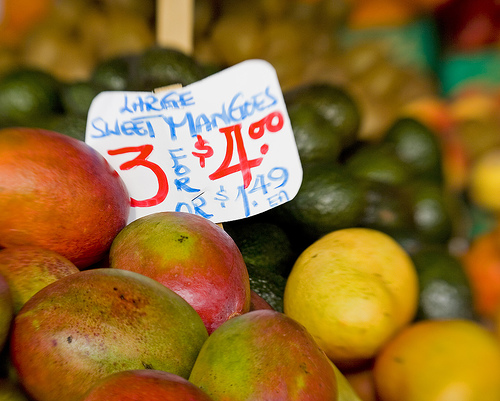 LARGE
SWEET MANGOES
3 FOR $4.00
OR $1.49 EA